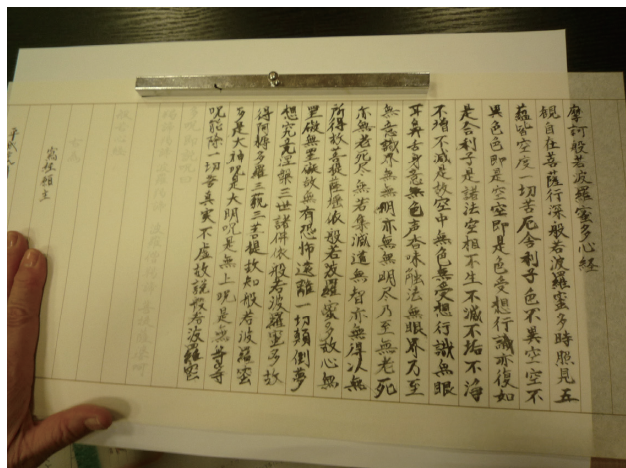 摩訶般若波羅蜜多心経
観自在菩薩行深般若波羅蜜多時照見五
蘊皆空度一切苦厄舎利子色不異空空不
異色色即是空空即是色受想行識亦復如
是舎利子是諸法空相不生不滅不垢不浄
不増不減是故空中無色無受想行識無眼
耳鼻舌身意無色声香味触法無眼界乃至
無意識界無無明亦無無明尽乃至無老死
亦無老死尽無苦集滅道無智亦無得以無
所得故菩提薩埵依般若波羅蜜多故心無
罣礙無罣礙故無有恐怖遠離一切顛倒夢
想究竟涅槃三世諸仏依般若波羅蜜多故
得阿耨多羅三藐三菩提故知般若波羅蜜
多是大神呪是大明呪是無上呪是無等等
呪能除一切苦真実不虚故説般若波羅蜜
多呪即説呪曰
般若心経
為